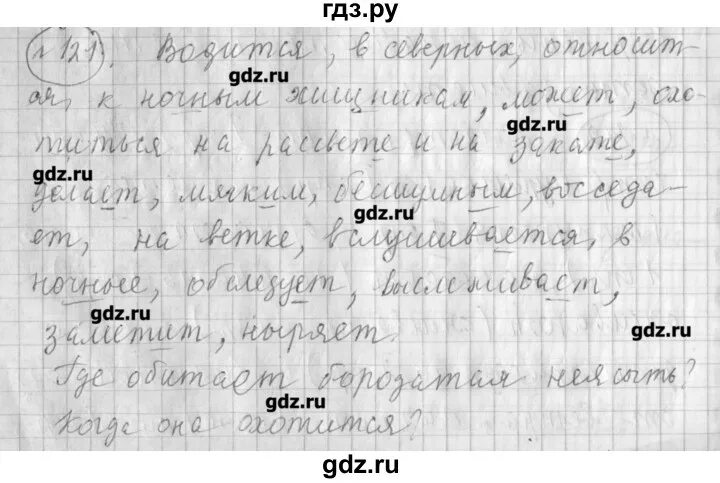 гдз.ру
№121. Водится, в северных, относит-
ся, к ночным хищникам, может, охо-
титься на рассвете и на закате,
делает, мягким, бесшумным, восседа-
ет, на ветке, вслушивается, в
ночные, обследует, выслеживает,
заметит, ныряет.
Где обитает бородатая неясыть?
Когда она охотится?
gdz.ru
gdz.ru
gdz.ru
gdz.ru
gdz.ru
gdz.ru
gdz.ru
gdz.ru